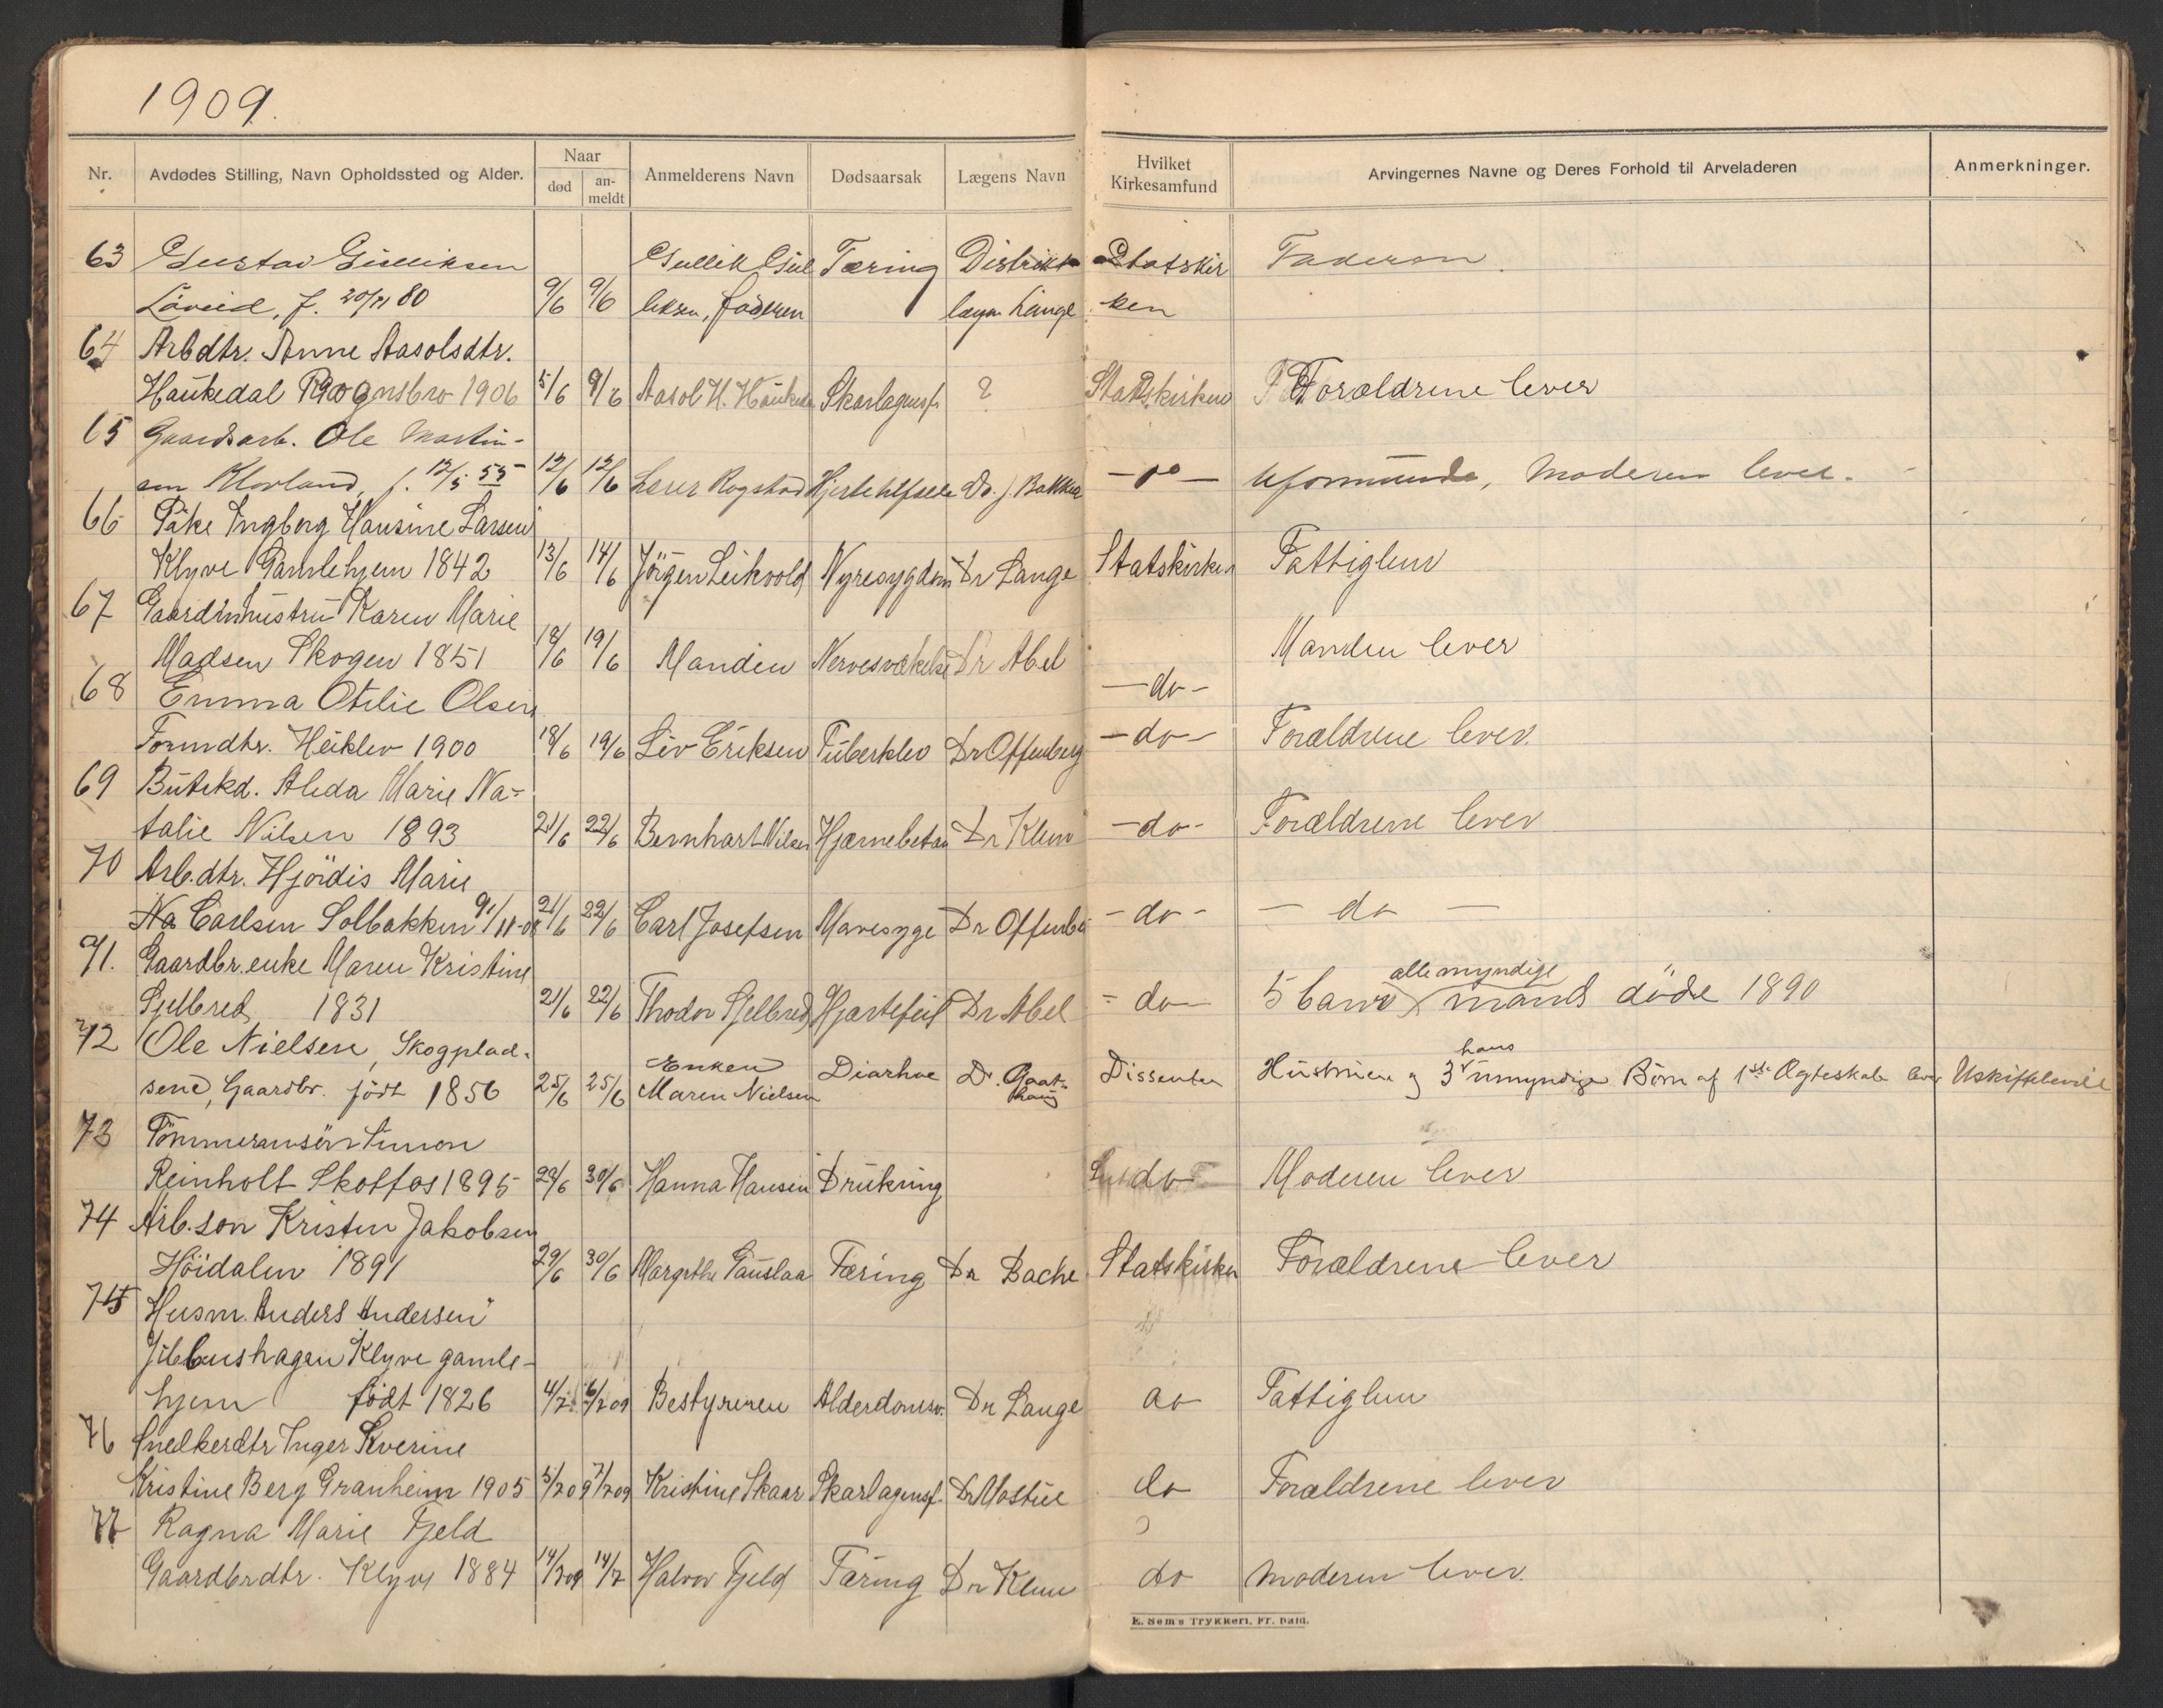 1909.
Nr. Avdødes Stilling, Navn Opholdssted og Alder. Naar død an-meldt Anmelderens Navn Dødsaarsak Lægens Navn Hvilket Kirkesamfund Arvingernes Navne og Deres Forhold til Arveladeren Anmerkninger.
63 Gustav Gulliksen Gullik Gul Tæring Distrikts Statskir Faderen.
Løveid, f. 80 9/6 9/6 liksen, faderen læge Lange ken
64 Arbdtr. Anne Aasolsdtr.
Haukedal Rognsbro 1906 5/6 9/6 Aasol H. Hauked Skarlagensf. ? Statskirken Forældrene lever
65 Gaardsarb. Ole Martin-
sen Klovland, f. 12/5 55 12/6 12/6 Rogstad Dr. J. Bakke - do - Uformuende, Moderen lever.
66 Pike Ingborg Hansine Larsen
Klyve Gamlehjem 1842 13/6 14/6 Jörgen Leikvold Nyresygdom Dr Lange Statskirken Fattiglem
67 Gaardmhustru Karen Marie
Madsen Skogen 1851 18/6 19/6 Manden Nervesvækelse Dr Abel Manden lever
68 Emma Otilie Olsen - do -
Formdtr. Heiklev 1900 18/6 19/6 Liv Eriksen Tuberklev Dr Offenberg - do - Forældrene lever.
69 Butekd. Alida Marie Na-
talie Nilsen 1893 21/6 22/6 Bernhart Nilsen Hjærnebetæn Dr Klem - do - Forældrene lever
70 Arb.dtr. Hjördis Marie
Na Carlsen Solbakken 9/11-08 21/6 22/6 Carl Josefsen Mavesyge Dr Offenbe - do - - do -
71. Gaardbr.enke Maren Kristine alle myndige
Sjelbred 1831 21/6 22/6 Thodor Sjelbred Hjærtefeil Dr Abel - do - 5 barn mand döde 1890
72 Ole Nielsen, Skogplad- Enken Diarhoe Dr. Gaat- Dissenter hans
sene, Gaardbr. født 1856 25/6 25/6 Maren Nielsen haug Hustruen og 3 umyndige Børn af 1ste Ægteskab lever Uskiftebevil
73 Tömmermsön Simon
Reinholt Skotfos 1895 29/6 30/6 Hanna Hansen Drukning do Moderen lever
74 Arb.son Kristen Jakobsen
Höidalen 1891 29/6 30/6 Margrethe Gauslaa Tæring Dr Bache Statskirken Forældrene lever
75 Husm. Anders Andersen
Jibbenshagen Klyve gamle-
hjem födt 1826 4/7 6/7 09 Bestyreren Alderdomsv. Dr Lange do Fattiglem
76 Snelkerdtr Inger Severine
Kristine Berg Granheim 1905 5/7 09 7/7 09 Kristine Skaar Skarlagensf. Dr Møstue do Forældrene lever
77 Ragna Marie Fjeld
Gaardbrdtr. Klyve 1884 14/7 09 14/7 Halvor Fjeld Tæring Dr Klem do Moderen lever.
E. Sem's Trykkeri, Fr. hald.